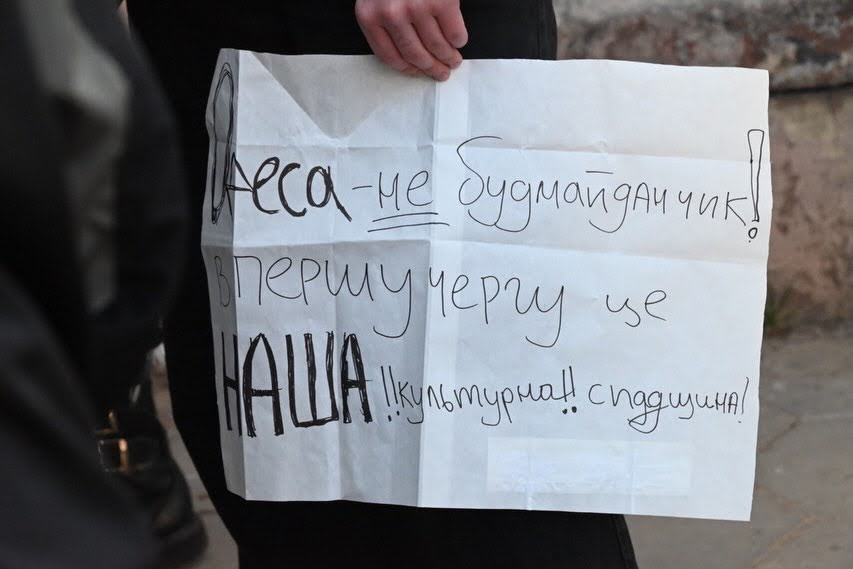 Одеса - не будмайданчик!
в першу чергу це
НАША !!культурна!! спадщина!